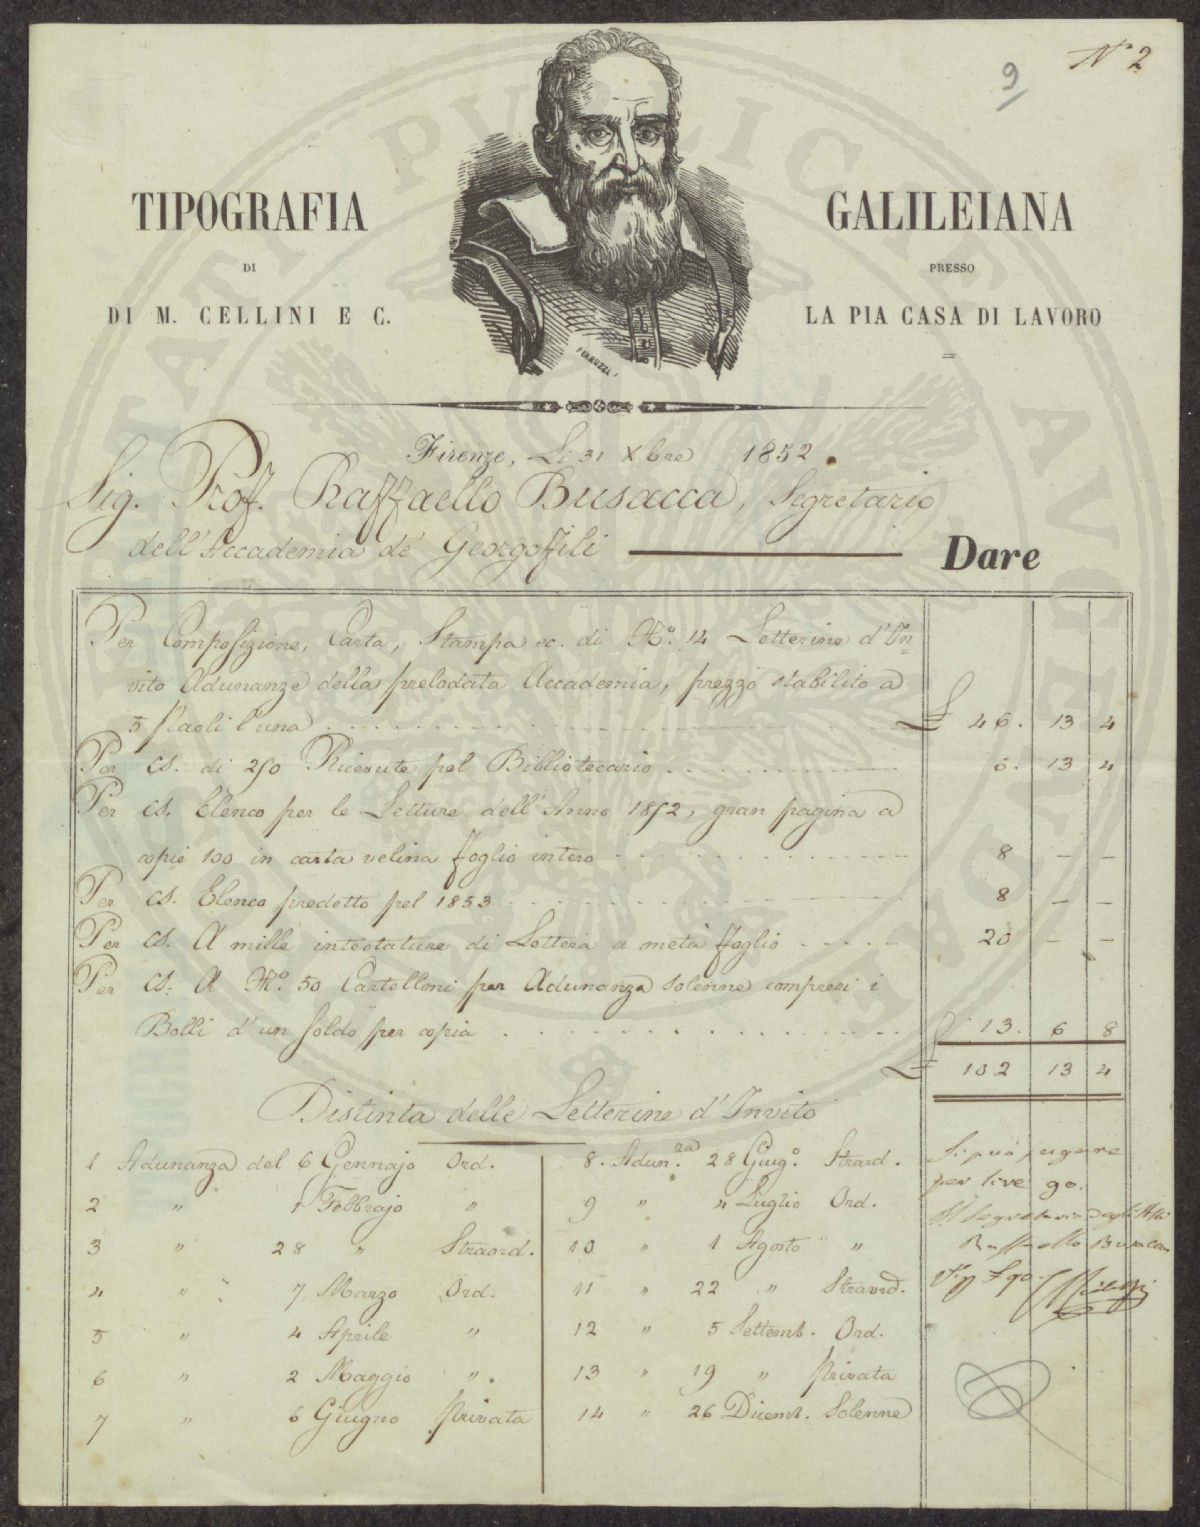 N° 2
9
TIPOGRAFIA
DI
DI M. CELLINI E C.
GALILEIANA
PRESSO
LA PIA CASA DI LAVORO
Firenze, Li 31 Xbre 1852.
Sig. Prof. Raffaello Busacca, Segretario
dell'Accademia de' Georgofili Dare
Per Composizione, Carta, Stampa ec. di N.° 14 Letterine d'In=
vito Adunanze della prelodata Accademia, prezzo stabilito a
5 Paoli l'una £ 46. 13 4
Per cs. di 250 Ricevute pel Bibliotecario 6. 13 4
Per cs. Elenco per le Letture dell'Anno 1852, gran pagina a
copie 100 in carta velina foglio intero 8 — —
Per cs. Elenco predetto pel 1853 8 — —
Per cs. A mille intestature di Lettera a metà foglio 20 — —
Per cs. A N.° 50 Cartelloni per Adunanza solenne compresi i
Bolli d'un soldo per copia 13. 6 8
£ 102 13 4
Distinta delle Letterine d'Invito
1 Adunanza del 6 Gennajo Ord.
2 " 1 Febbrajo "
3 " 28 " Straord.
4 " 7 Marzo Ord.
5 " 4 Aprile "
6 " 2 Maggio ".
7 " 6 Giugno Privata
8. Adun.za 28 Giug.° Strard.
9 " 4 Luglio Ord.
10 " 1 Agosto "
11 " 22 " Straord.
12 " 5 Settemb. Ord.
13 " 19 " Privata
14 " 26 Dicemb. Solenne
Si può pagare
per lire 90.
Il Segretario degli Atti
Raffaello Busacca